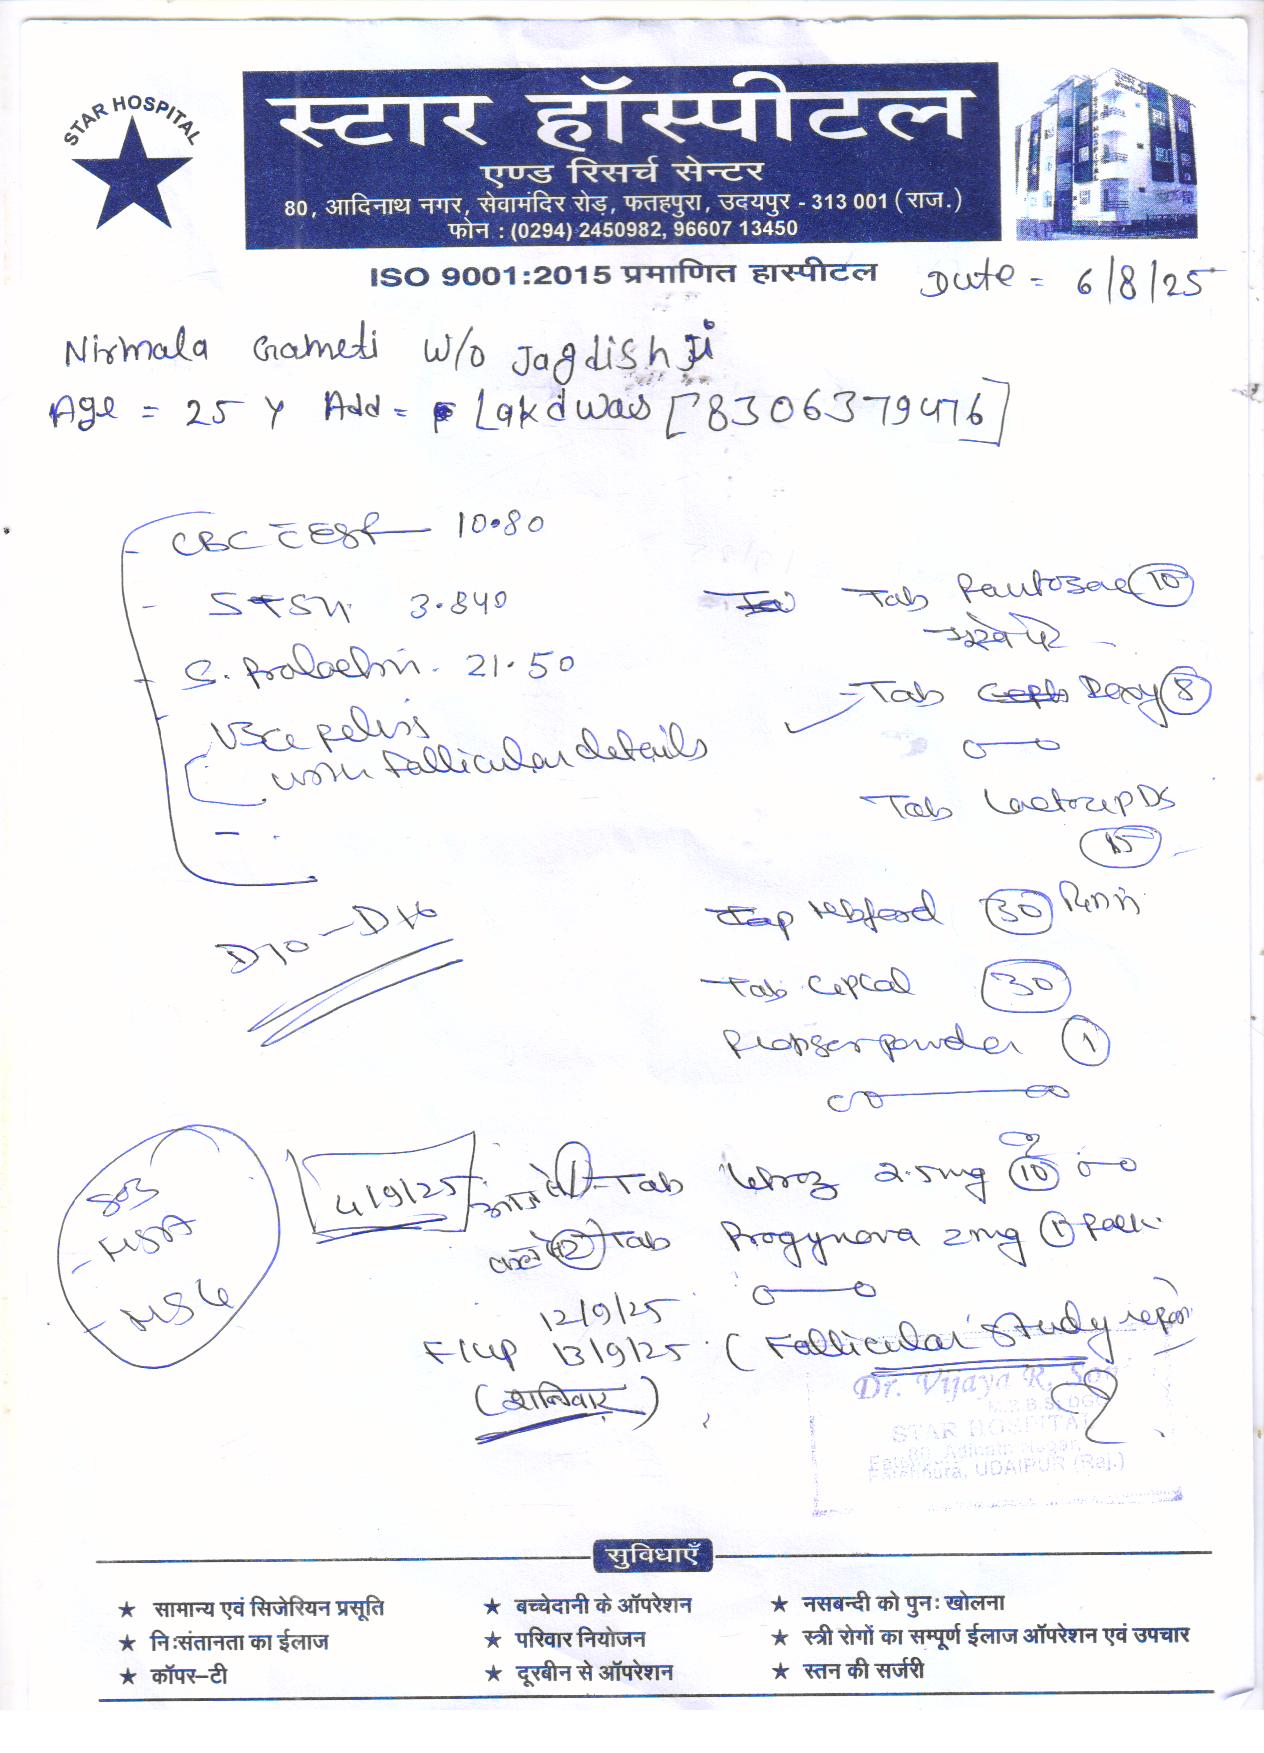 STAR HOSPITAL
स्टार हॉस्पीटल
एण्ड रिसर्च सेन्टर
80, आदिनाथ नगर, सेवामंदिर रोड़, फतहपुरा, उदयपुर - 313 001 (राज.)
फोन : (0294) 2450982, 96607 13450
ISO 9001:2015 प्रमाणित हास्पीटल
Date = 6/8/25
Nirmala Gameti W/o Jagdish Ji
Age = 25 Y Add = Lakdwas [8306379476]
CBC ESR 10.80
S TSH 3.840
S. Prolactin. 21.50
pelvis
with Follicular details
D10 - D16
Tab Pantozac 10
भूखे पेट
Tab Doxy 8
Tab DS
15
30
Tab Cepcal 30
powder 1
4/9/25
आज से 1 Tab Letroz 2.5mg 10
2 Tab Progynova 2mg 1
12/9/25
F/up 13/9/25 (Follicular Study report
(शनिवार)
Dr. Vijaya R.
M.B.B.S. DGO
STAR HOSPITAL
80, Adinath Nagar,
Fatehpura, UDAIPUR (Raj.)
सुविधाएँ
★ सामान्य एवं सिजेरियन प्रसूति ★ बच्चेदानी के ऑपरेशन ★ नसबन्दी को पुनः खोलना
★ निःसंतानता का ईलाज ★ परिवार नियोजन ★ स्त्री रोगों का सम्पूर्ण ईलाज ऑपरेशन एवं उपचार
★ कॉपर-टी ★ दूरबीन से ऑपरेशन ★ स्तन की सर्जरी